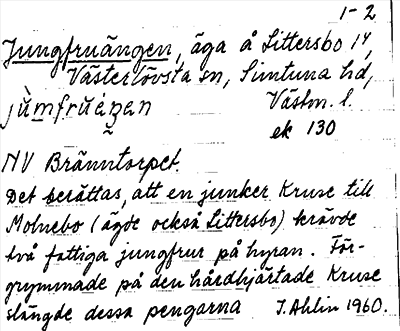 1-2
Jungfruängen, äga å Littersbo 1⁴,
Västerlövsta sn, Simtuna hd,
jùmfrúeŋen Västm. l.
ek 130
NV Bränntorpet.
Det berättas, att en junker Kruse till
Molnebo (ägde också Littersbo) krävde
två fattiga jungfrur på hyran. För-
grymmade på den hårdhjärtade Kruse
slängde dessa pengarna J. Ahlin 1960.